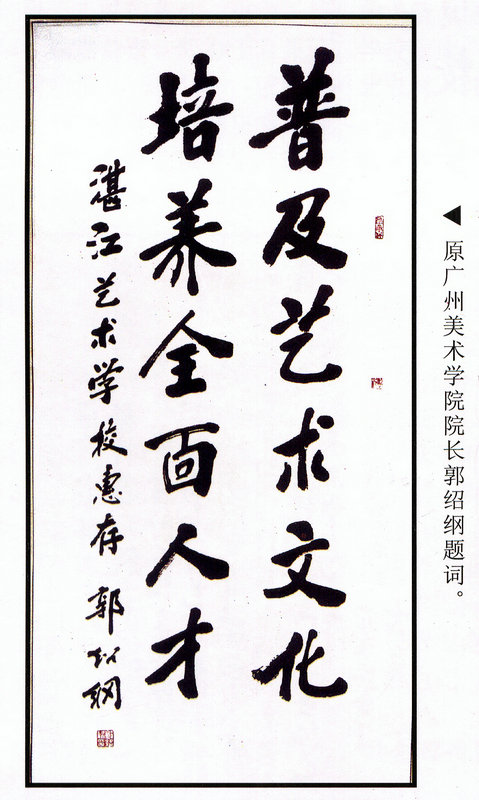 普及艺术文化
培养全面人才
湛江艺术学校惠存 郭绍纲
◀ 原广州美术学院院长郭绍纲题词。